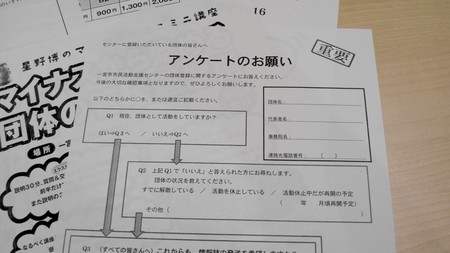 900円 1,300円 2,000
ミニ講座
16
星野博のマ
マイナス
団体の
場所
説明30分、質問&交
センターに登録いただいている団体の皆さんへ
アンケートのお願い
重要
一宮市市民活動支援センターの団体登録に関するアンケートにお答えください。
今後の大切な確認事項となりますので、ぜひよろしくお願いします。
以下のどちらかに○を、または適宜ご記載ください。
団体名
代表者名
事務局名
連絡先電話番号 ( )
Q1 現在、団体として活動をしていますか?
はい⇒Q3へ / いいえ⇒Q2へ
Q2 上記Q1で「いいえ」と答えられた方にお尋ねします。
団体の状況を教えてください。
すでに解散している / 活動を休止している / 活動休止中だが再開の予定
( 年 月頃再開予定)
その他 (
Q3 (すべての皆さんへ) これからも、情報誌の発送を希望しますか
なるべく講座